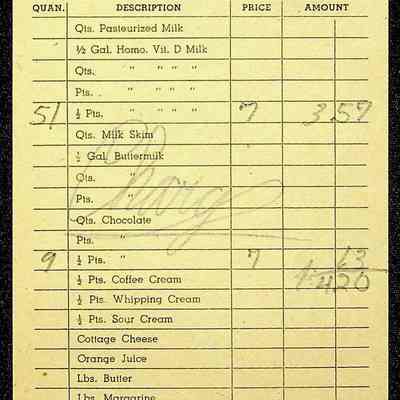 QUAN. DESCRIPTION PRICE AMOUNT
Qts. Pasteurized Milk
½ Gal. Homo. Vit. D Milk
Qts. " " " "
Pts. " " " "
51 ½ Pts. " " " " 7 3.57
Qts. Milk Skim
½ Gal. Buttermilk
Qts. "
Pts. "
Charg
Qts. Chocolate
Pts. "
9 ½ Pts. " 7 63
½ Pts. Coffee Cream 420
½ Pts. Whipping Cream
½ Pts. Sour Cream
Cottage Cheese
Orange Juice
Lbs. Butter
Lbs. Margarine